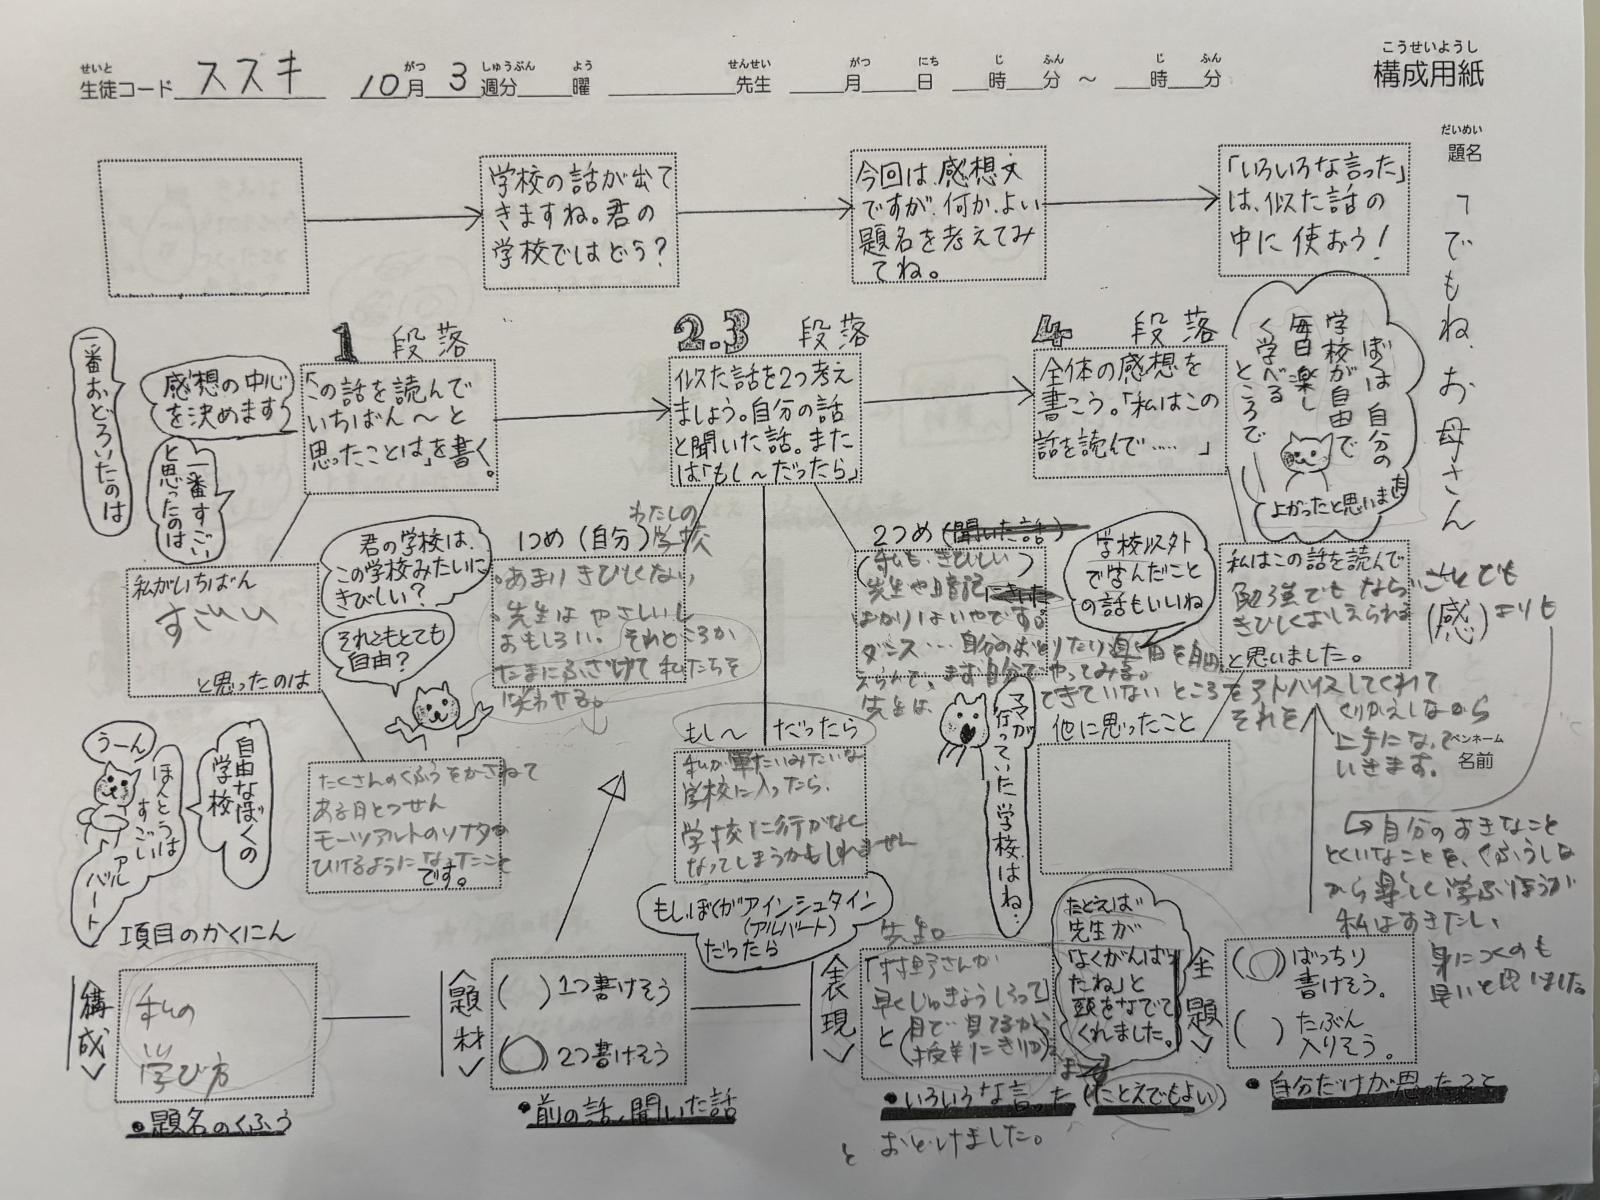 せいと
生徒コード スズキ
がつ しゅうぶん よう
10月3週分 曜
せんせい
先生
がつ にち じ ふん じ ふん
月 日 時 分 ～ 時 分
こうせいようし
構成用紙
だいめい
題名
でもね、お母さん
学校の話が出て
きますね。君の
学校ではどう？
今回は、感想文
ですが、何か、よい
題名を考えてみ
てね。
「いろいろな言った」
は、似た話の
中に使おう！
1 段落
2.3 段落
4 段落
一番おどろいたのは
感想の中心
を決めます
一番すごい
と思ったのは
「この話を読んで
いちばん〜と
思ったことは」を書く。
似た話を2つ考え
ましょう。自分の話
と聞いた話。また
は「もし〜だったら」
全体の感想を
書こう。「私はこの
話を読んで……」
ぼくは自分の
学校が自由で
毎日楽し
く学べる
ところで
よかったと思います
私がいちばん
すごい
と思ったのは
君の学校は、
この学校みたいに
きびしい？
それともとても
自由？
1つめ（自分）わたしの
学校
。あまりきびしくない
。先生はやさしいし
おもしろい。それどころか
たまにふざけて私たちを
笑わせる。
2つめ（聞いた話）
（私も、きびしい
先生や暗記
ばかりはいやです。
ダンス…
まず自分でやってみる。
先生は、できていないところをアドバイスしてくれて
それを
くりかえしながら
上手になって
いきます。
学校以外
で学んだこと
の話もいいね
私はこの話を読んで
勉強でもならいごとでも
きびしくおしえられる
（感）よりも
と思いました。
自分のすきなこと
とくいなことを、くふうしな
がら楽しく学ぶほうが
私はすきだし、
身につくのも
早いと思いました。
うーん
ほんとうは
すごい
アルバート
自由なぼくの
学校
たくさんのくふうをかさねて
ある日とつぜん
モーツアルトのソナタが
ひけるようになったこと
です。
もし〜 だったら
私が軍たいみたいな
学校に入ったら、
学校に行かなく
なってしまうかもしれません
もしぼくがアインシュタイン
（アルバート）
だったら
ママが
行っていた学校はね…
他に思ったこと
ペンネーム
名前
項目のかくにん
構成
私の
学び方
●題名のくふう
題材
（　）1つ書けそう
（○）2つ書けそう
●前の話、聞いた話
表現
先生。
早くじゅぎょうしろって
目で見てるから
と
たとえば
先生が
「よくがんばっ
たね」と
頭をなでて
くれました。
●いろいろな言った（たとえでもよい）
とおどけました。
主題
（○）ばっちり
書けそう。
（　）たぶん
入りそう。
●自分だけが思ったこと